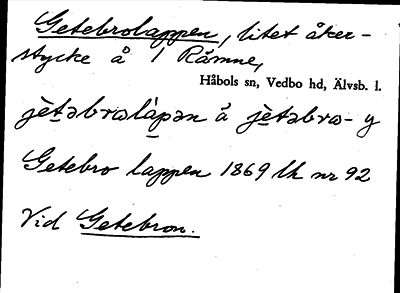 Getebrolappen, litet åker-
stycke å 1 Rämne,
Håbols sn, Vedbo hd, Älvsb. l.
jè̱təbrωlápən å jè̱təbrω- y
Getebro lappen 1869 lk nr 92
Vid Getebron.